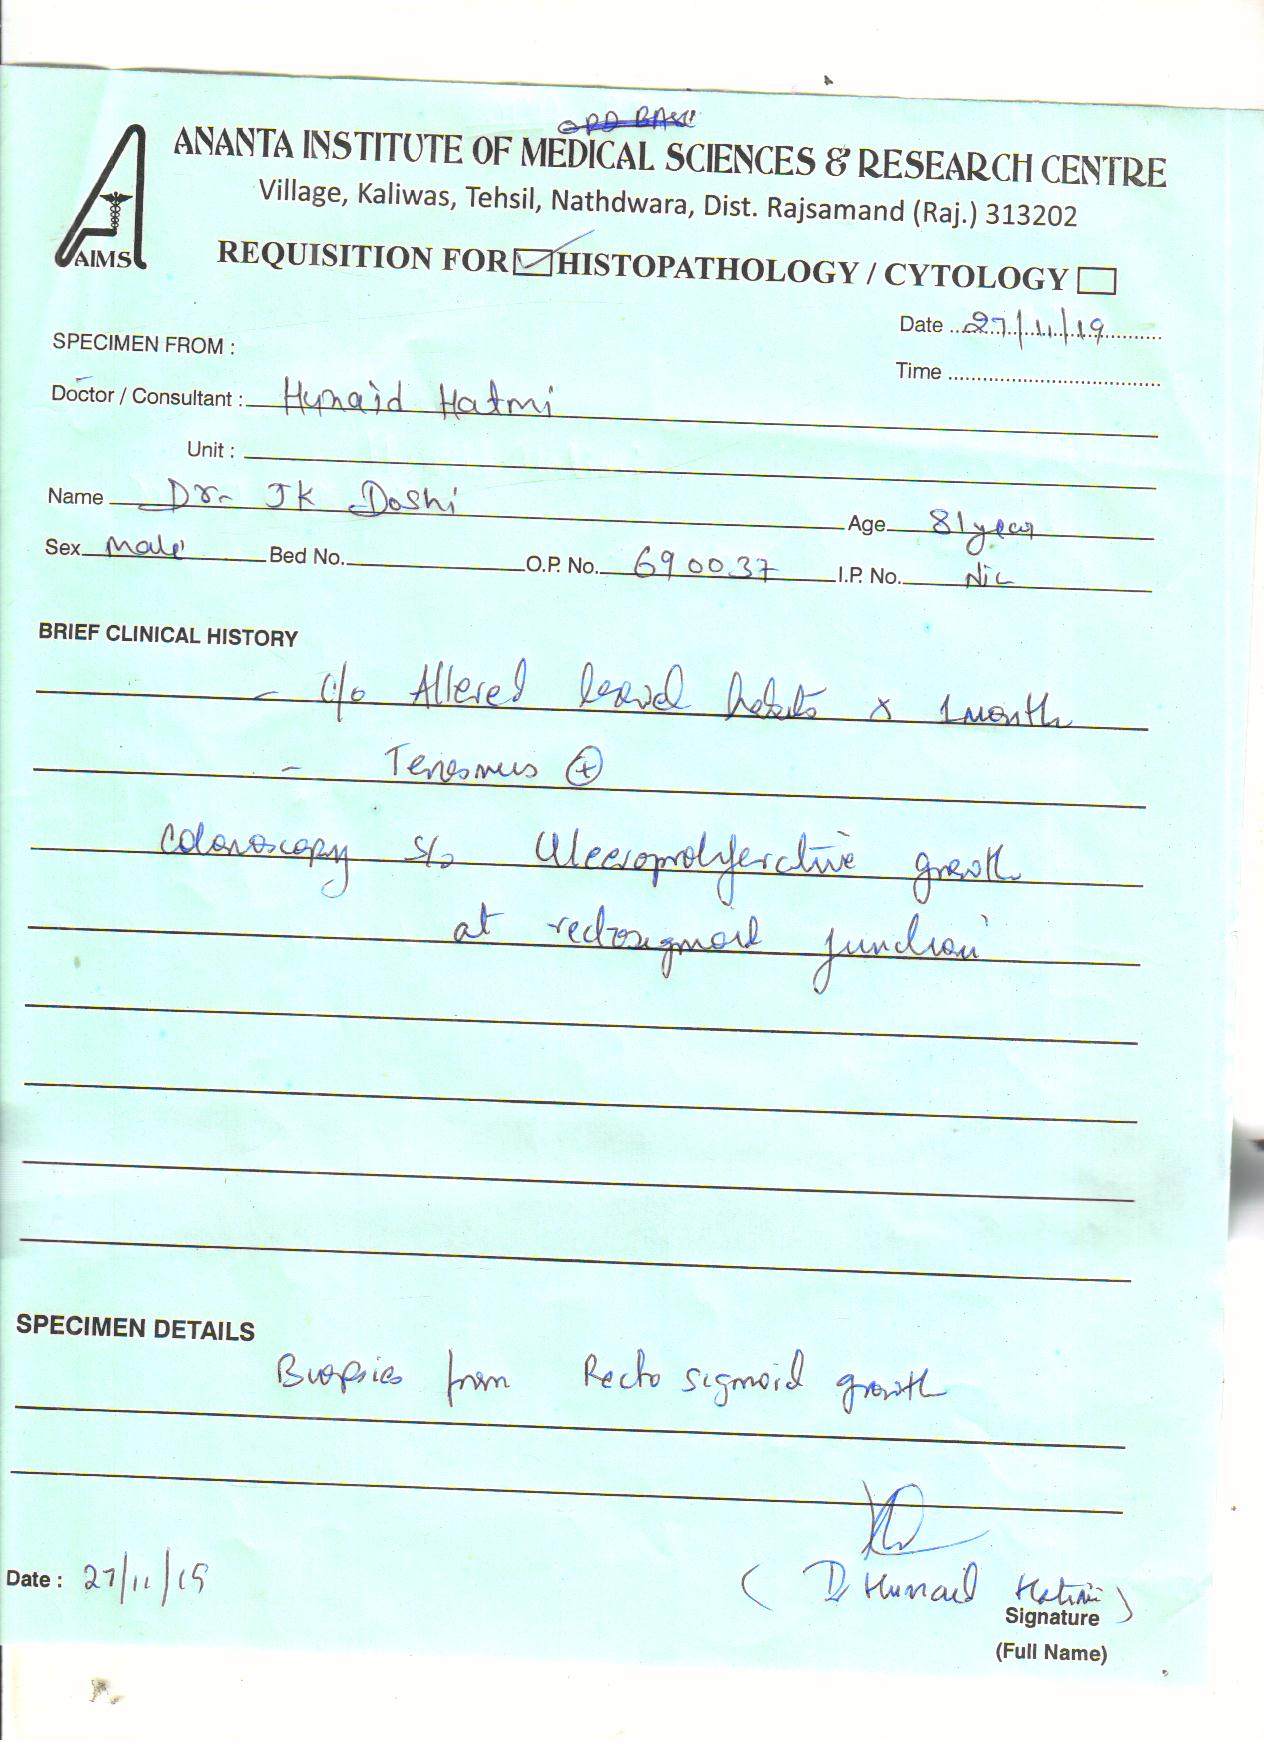 OPD BASI
ANANTA INSTITUTE OF MEDICAL SCIENCES & RESEARCH CENTRE
Village, Kaliwas, Tehsil, Nathdwara, Dist. Rajsamand (Raj.) 313202
AIMS
REQUISITION FOR HISTOPATHOLOGY / CYTOLOGY
Date 27/11/19
SPECIMEN FROM :
Time
Doctor / Consultant : Hunaid Hatmi
Unit :
Name Dr. JK Doshi Age 81 year
Sex male Bed No. O.P. No. 690037 I.P. No. Nil
BRIEF CLINICAL HISTORY
- c/o Altered bowel habits x 1 month
- Tenesmus (+)
Colonoscopy s/o Ulceroproliferative growth
at rectosigmoid junction
SPECIMEN DETAILS
Biopsies from Recto sigmoid growth
Date : 27/11/19
( Dr Hunaid Hatimi )
Signature
(Full Name)